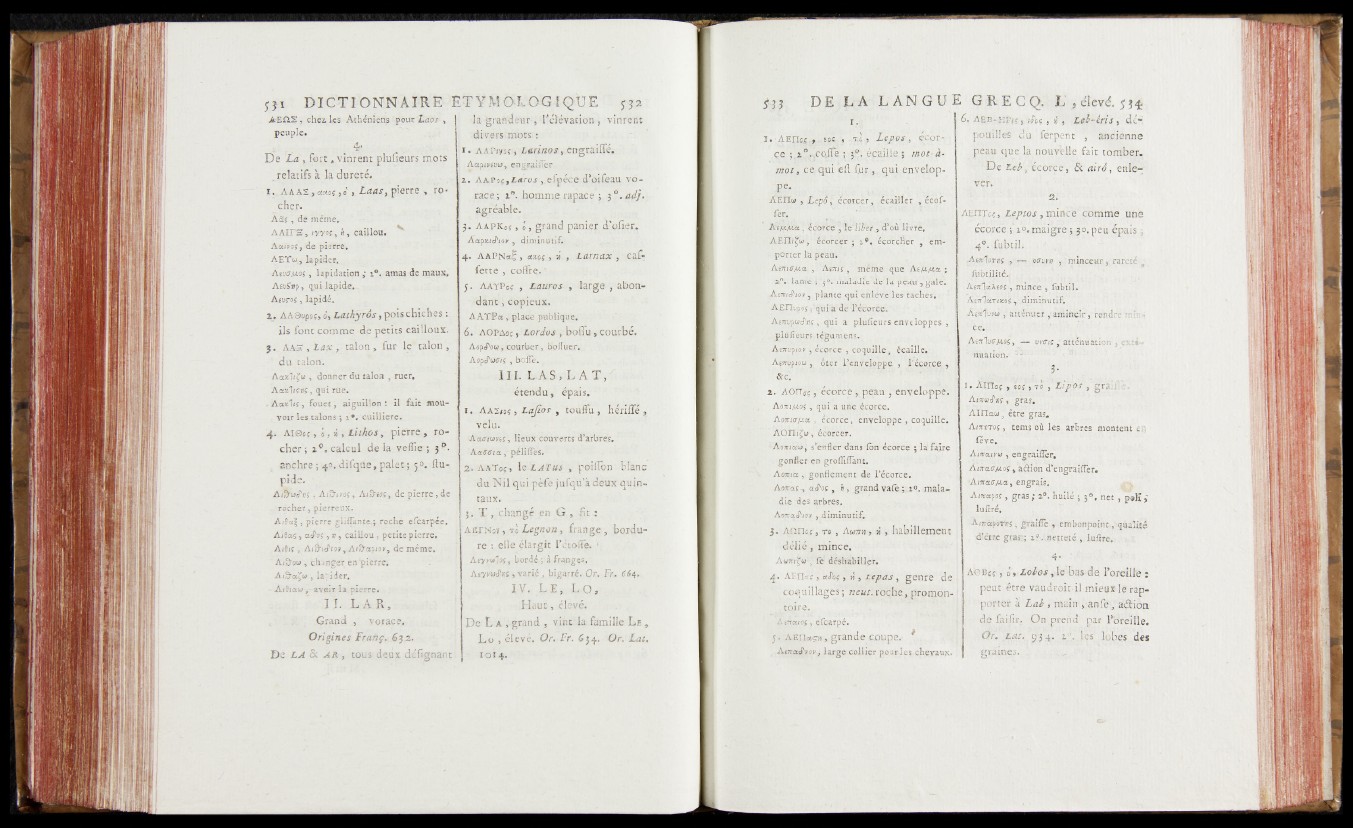 531 DICTIONNAIRE ETYMOLOGIQUE 532
ΛΕΩΣ, chez les Athéniens pour Laos,
peuple.
4.
De La, fort, vinrent plusieurs mots
relatifs à la dureté.
1. ΛΑΑΣ, αος, ὁ, Laas, pierre, ro-
cher.
Λᾶς, de même.
ΛΑΙΓΞ, ιγγος, ἡ, caillou.
Λαινος, de pierre.
ΛΕΥω, lapider.
Λευσμος, lapidation; 2°. amas de maux.
Λευστηρ, qui lapide.
Λευτος, lapidé.
2. ΛΑΘυρος, ὁ, Lathyròs, pois chiches:
ils font comme de petits cailloux.
3. ΛΑΞ, Lax, talon, sur le talon,
du talon.
Λακτιζω, donner du talon, ruer.
Λακτικος, qui rue.
Λακτις, fouet, aiguillon: il fait mou-
voir les talons; 2°. cuilliere.
4. ΛΙΘος, ὁ, ἡ, Lithos, pierre, ro-
cher; 2°. calcul de la vessie; 3°.
anchre; 4°. disque, palet; 5°. stu-
pide.
Λιθωδης, Λιθινος, Λιθεος, de pierre, de
rocher, pierreux.
Λιθαξ, pierre glissante; roche escarpée.
Λιθας, αδος, ἡ, caillou, petite pierre.
Λιθις, Λιθιδιον, Λιθαριον, de même.
Λιθοω, changer en pierre.
Λιθαζω, lapider.
Λιθιαω, avoir la pierre.
II. LAR,
Grand, vorace.
Origines Franç. 632.
De LA & AR, tous deux désignant
la grandeur, l'élévation, vinrent
divers mots:
1. ΛΑΡινος, Larinos, engraissé.
Λαρινευω, engraisser.
2. ΛΑΡος, Laros, espéce d'oiseau vo-
race; 2°. homme rapace; 3°. adj.
agréable.
3. ΛΑΡΚος, ὁ, grand panier d'osier.
Λαρκιδιον, diminutif.
4. ΛΑΡΝαξ, ακος, ἡ, Larnax, cas-
sette, coffre.
5. ΛΑΥΡος, Lauros, large, abon-
dant, copieux.
ΛΑΥΡα, place publique.
6. ΛΟΡΔος, Lordos, bossu, courbé.
Λορδοω, courber, bossuer.
Λορδωσις, bosse.
III. LAS, LAT,
étendu, épais.
1. ΛΑΣιος, Lasios, touffu, hérissé,
velu.
Λασιωνες, lieux couverts d'arbres.
Λασσια, pélisses.
2. ΛΑΤος, le LATus, poisson blanc
du Nil qui pése jusqu'à deux quin-
taux.
3. T, changé en G, fit:
ΛΕΓΝον, το Legnon, frange, bordu-
re: elle élargit l'étoffe.
Λεγνωτος, bordé; à franges.
Λεγνωδες, varié, bigarré. Or. Fr. 664.
IV. LE, LO,
Haut, élevé.
De LA, grand, vint la famille LE,
Lo, élevé. Or. Fr. 634. Or. Lat.
1014.
533 DE LA LANGUE GRECQ. L, élevé. 534
1.
1. ΛΕΠος, εος, το, Lepos, écor-
ce; 2°. cosse; 3°. écaille; mot-à-
mot, ce qui est sur, qui envelop-
pe.
ΛΕΠω, Lepô, écorcer, écailler, écos-
ser.
Λεμμα, écorce, le liber, d'où livre.
ΛΕΠιζω, écorcer; 2°. écorcher, em-
porter la peau.
Λεπισμα, Λεπις, même que Λεμμα;
2°. lame; 3°. maladie de la peau, gale.
Λεπιδιον, plante qui enleve les taches.
ΛΕΠυρος, qui a de l'écorce.
Λεπυρωδης, qui a plusieurs enveloppes,
plusieurs tégumens.
Λεπυριον, écorce, coquille, écaille.
Λεπυριοω, ôter l'enveloppe, l'écorce,
&c.
2. ΛΟΠος, écorce, peau, enveloppe.
Λοπιμος, qui a une écorce.
Λοπισμα, écorce, enveloppe, coquille.
ΛΟΠιζω, écorcer.
Λοπιαω, s'enfler dans son écorce; la faire
gonfler en grossissant.
Λοπια, gonflement de l'écorce.
Λοπας, αδος, ἡ, grand vase; 2°. mala-
die des arbres.
Λοπαδιον, diminutif.
3. ΛΩΠος, το, Λωπη, ἡ, habillement
délié, mince.
Λωπιζω, se déshabiller.
4. ΛΕΠας, αδος, ἡ, Lepas, genre de
coquillages; neut. roche, promon-
toire.
Λεπαιος, escarpé.
5. ΛΕΠαστη, grande coupe.
Λεπαδνον, large collier pour les chevaux.
6. ΛΕΒ-ΗΡις, ιδος, ἡ, Leb-êris, dé-
pouilles du serpent, ancienne
peau que la nouvelle fait tomber.
De Leb, écorce, & airó, enle-
ver.
2.
ΛΕΠΤος, Leptos, mince comme une
écorce; 2°. maigre; 3°. peu épais;
4°. subtil.
Λεπτοτης, — οσυνη, minceur, rareté,
subtilité.
Λεπταλεος, mince, subtil.
Λεπτατικος, diminutif.
Λεπτυνω, atténuer, amincir, rendre min-
ce.
Λεπτυσμος, — υνσις, atténuation, exté-
nuation.
3.
1. ΛΙΠος, εος, το, Lipos, graisse.
Λιπωδης, gras.
ΛΙΠαω, être gras.
Λιπετος, tems où les arbres montent en
séve.
Λιπαινω, engraisser.
Λιπασμος, action d'engraisser.
Λιπασμα, engrais.
Λιπαρος, gras; 2°. huilé; 3°. net, poli,
lustré.
Λιπαροτης, graisse, embonpoint, qualité
d'être gras; 2°. netteté, lustre.
4.
ΛΟΒος, ὁ, Lobos, le bas de l'oreille:
peut être vaudroit-il mieux le rap-
porter à Lab, main, anse, action
de saisir. On prend par l'oreille.
Or. Lat. 934. 2°. les lobes des
graines.